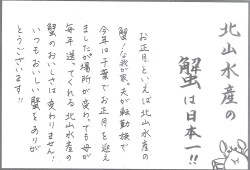 北山水産の
蟹は日本一!!
お正月といえば北山水産の
蟹!な我が家。夫が転勤族で
今年は千葉でお正月を迎え
ましたが場所が変わっても母が
毎年送ってくれる北山水産の
蟹のおいしさは変わりません!
いつもおいしい蟹をありが
とうございます!!